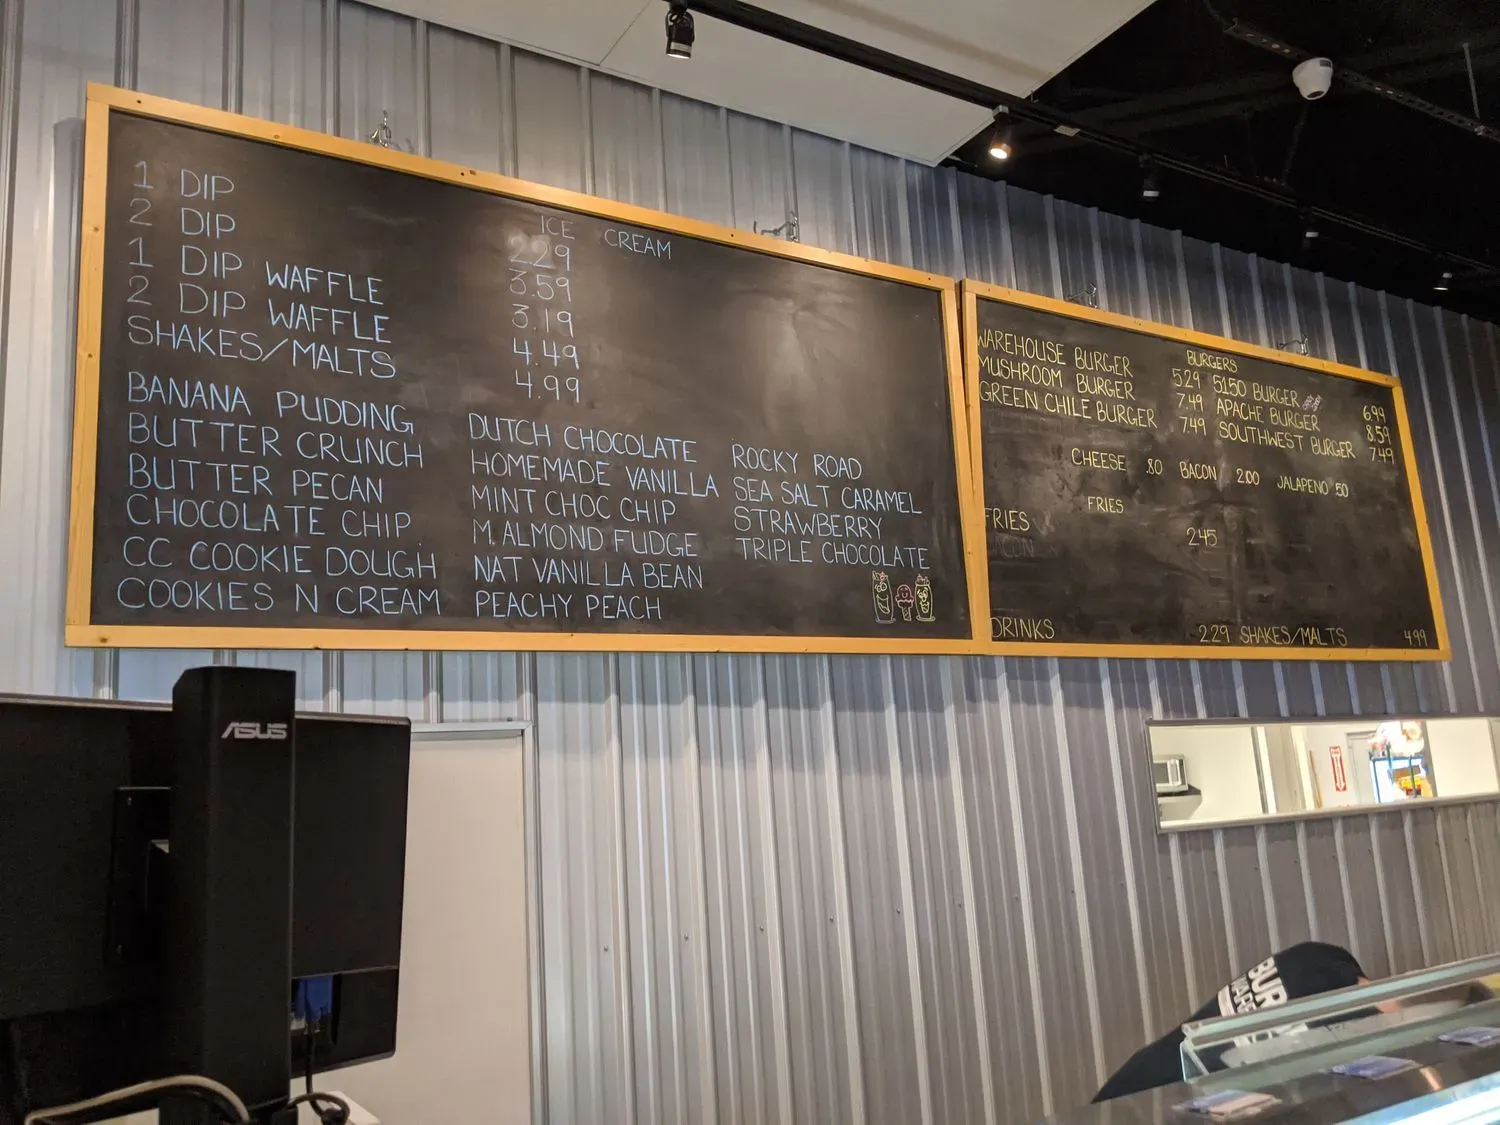 ICE CREAM
1 DIP 2.29
2 DIP 3.59
1 DIP WAFFLE 3.19
2 DIP WAFFLE 4.49
SHAKES/MALTS 4.99
BANANA PUDDING
BUTTER CRUNCH
BUTTER PECAN
CHOCOLATE CHIP
CC COOKIE DOUGH
COOKIES N CREAM
DUTCH CHOCOLATE
HOMEMADE VANILLA
MINT CHOC CHIP
M. ALMOND FUDGE
NAT VANILLA BEAN
PEACHY PEACH
ROCKY ROAD
SEA SALT CARAMEL
STRAWBERRY
TRIPLE CHOCOLATE
BURGERS
WAREHOUSE BURGER 5.29 5150 BURGER 6.99
MUSHROOM BURGER 7.49 APACHE BURGER 8.59
GREEN CHILE BURGER 7.49 SOUTHWEST BURGER 7.49
CHEESE .80 BACON 2.00 JALAPENO .50
FRIES
FRIES 2.45
BACON
DRINKS 2.29 SHAKES/MALTS 4.99
ASUS
BUR